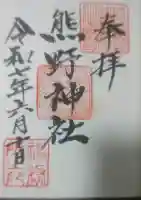 奉拝
熊野神社
令和七年六月十日